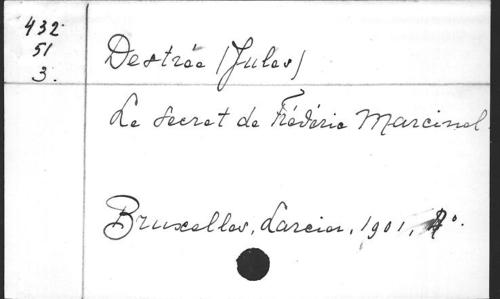 432
51
3.
Destrée (Jules)
Le secret de Frédéric Marcinel.
Bruxelles, Larcier, 1901,